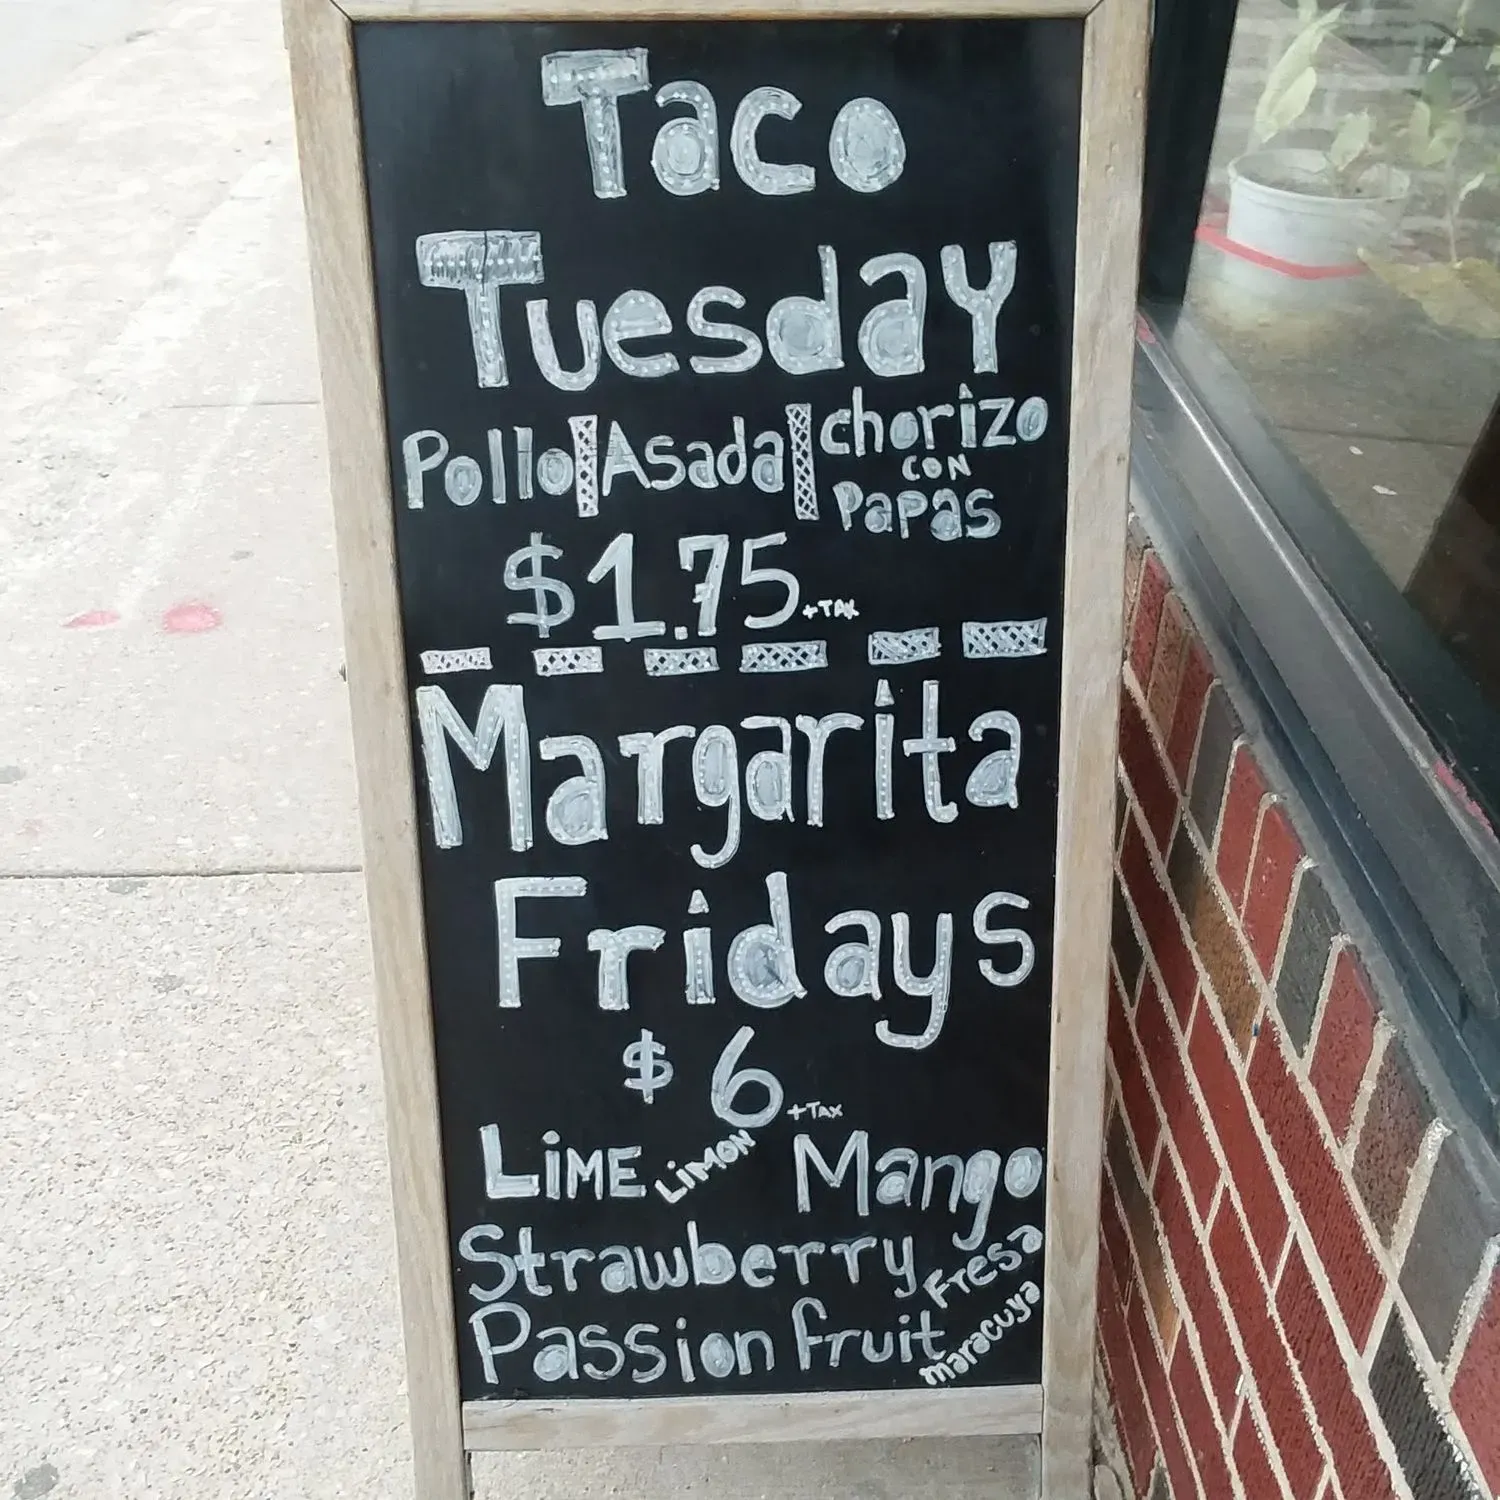 Taco
Tuesday
Pollo Asada chorizo
con
Papas
$1.75 +TAX
Margarita
Fridays
$6 +TAX
LiME LiMON Mango
Strawberry Fresa
Passion fruit maracuya